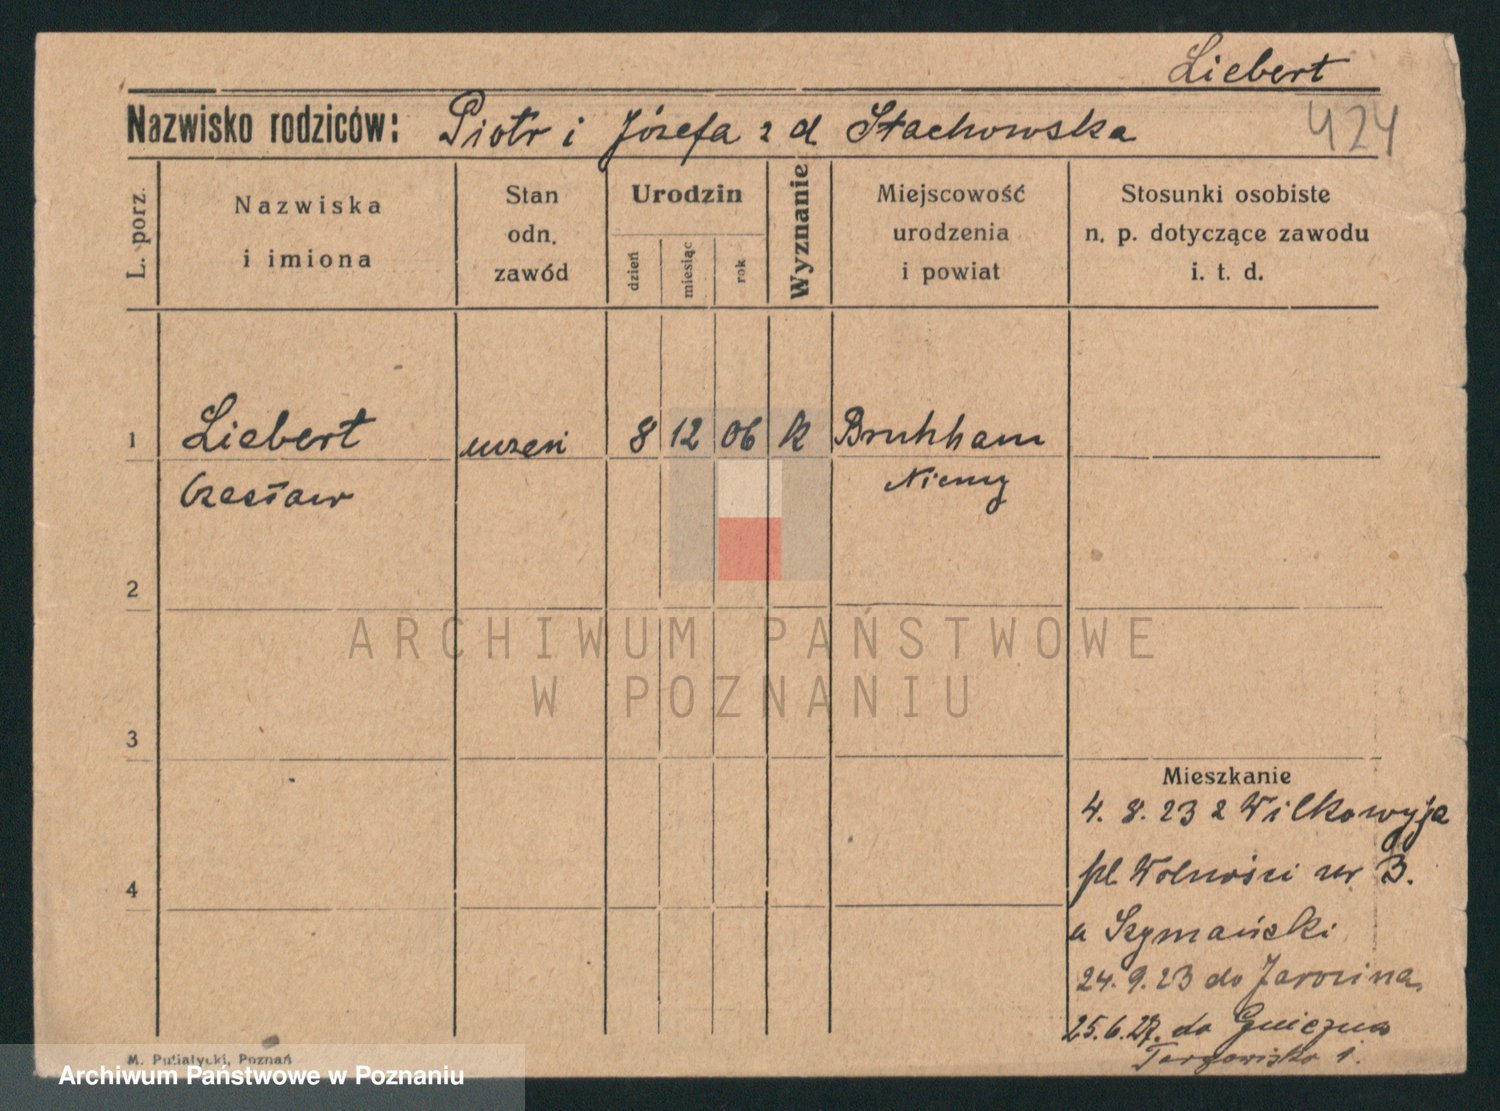 Liebert
Nazwisko rodziców: Piotr i Józefa z d Stachowska
424
L. porz.
Nazwiska
i imiona
Stan
odn.
zawód
Urodzin
dzień
miesiąc
rok
Wyznanie
Miejscowość
urodzenia
i powiat
Stosunki osobiste
n. p. dotyczące zawodu
i. t. d.
1 Liebert uczeń 8 12 06 k Bruhham
Czesław Niemcy
2
ARCHIWUM PAŃSTWOWE
W POZNANIU
3
Mieszkanie
4. 8. 23 z Wilkowyja
pl Wolności nr 3.
4
u Szymański
24. 9. 23 do Jarocina,
25. 6. 27. do Gniezna
Targowisko 1.
M. Putiatycki, Poznań
Archiwum Państwowe w Poznaniu